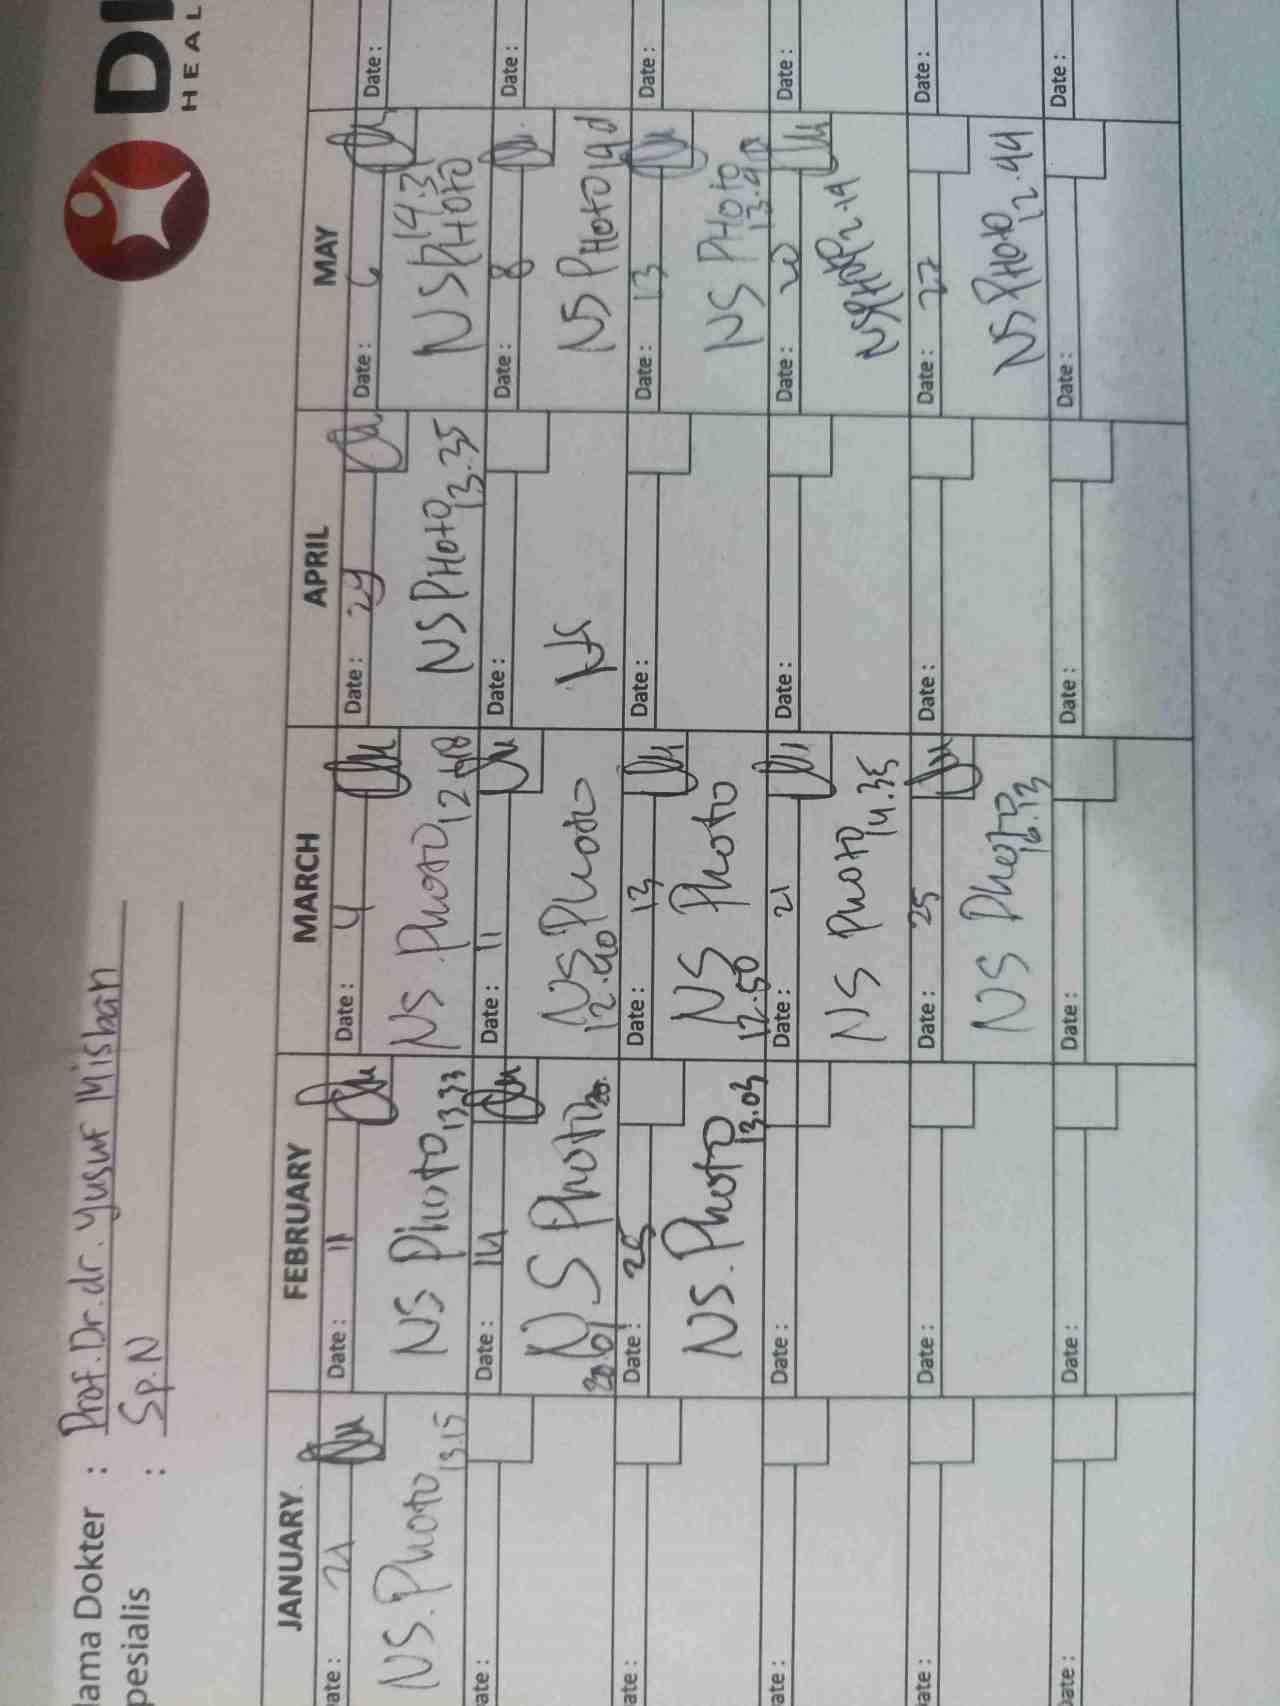 DI
HEAL
ama Dokter : Prof.Dr.dr. Yusuf Misbah
pesialis : Sp.N
JANUARY FEBRUARY MARCH APRIL MAY
ate : 21
NS. Photo 13.15
ate :
ate :
ate :
ate :
ate :
Date : 11
NS Photo 13.33
Date : 14
NS Photo
Date : 25
NS. Photo 13.03
Date :
Date :
Date :
Date : 4
NS. Photo 12.48
Date : 11
NS Photo
12.40
Date : 13
NS Photo
12.50
Date : 21
NS Photo 14.35
Date : 25
NS Photo 16.13
Date :
Date : 29
NS PHoto 13.35
Date :
NS
Date :
Date :
Date :
Date :
Date : 6
NS PHoto
Date : 8
NS PHoto
Date : 13
NS PHoto
Date :
NS PHoto
Date : 27
NS PHoto 12.44
Date :
Date :
Date :
Date :
Date :
Date :
Date :